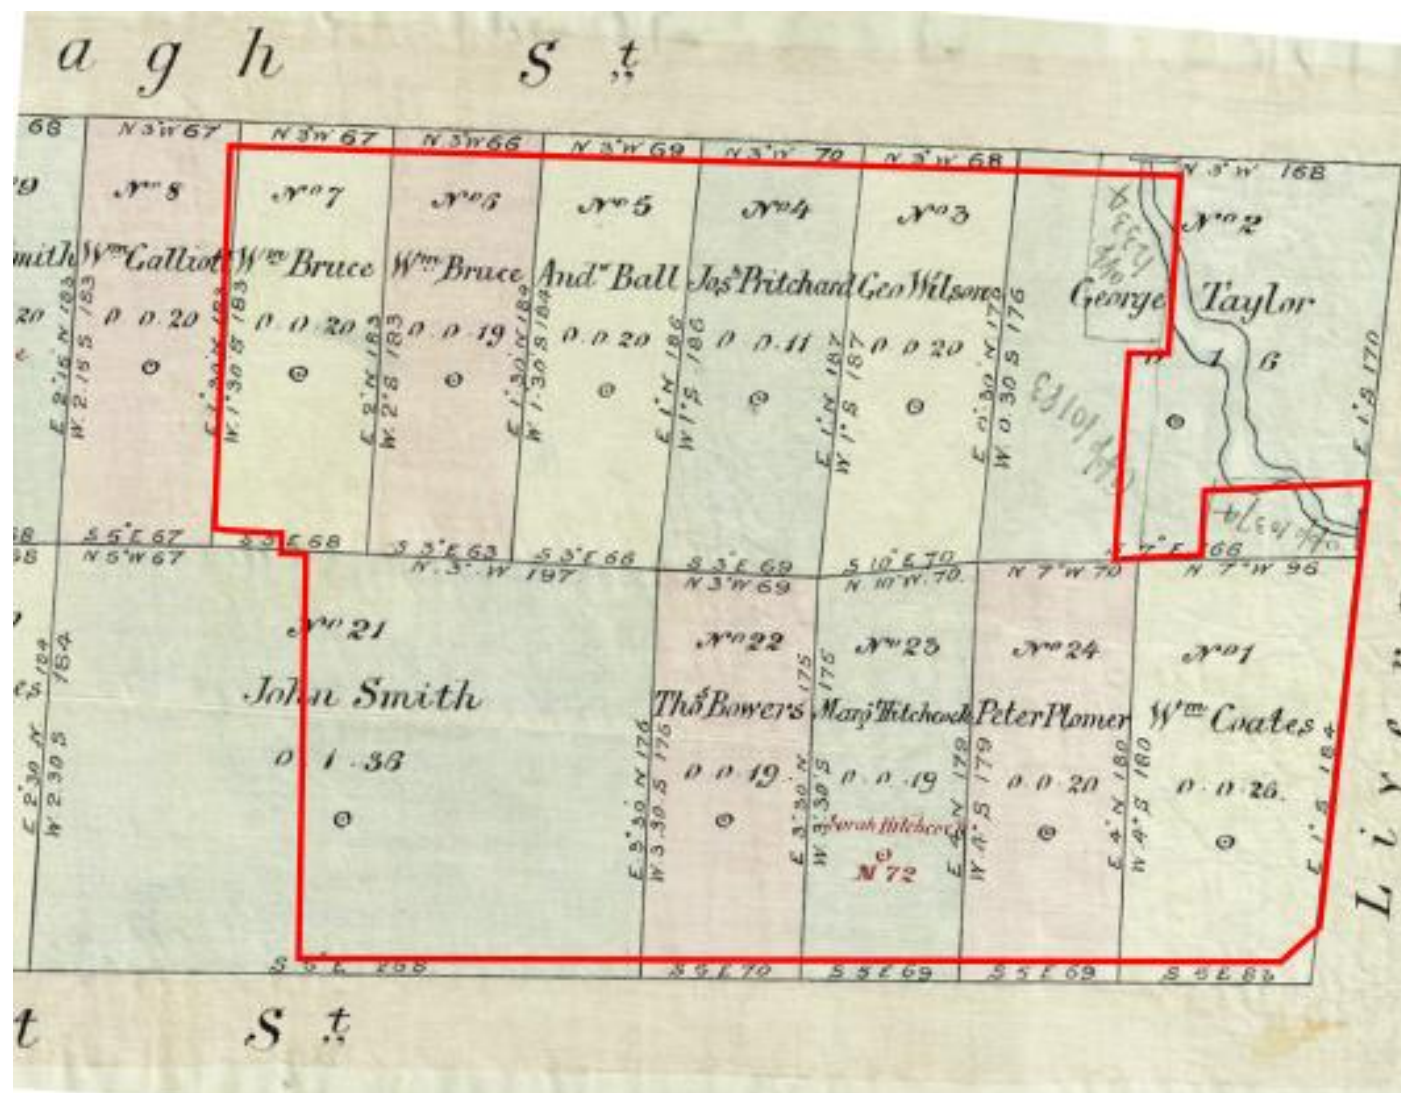 agh St
68 N 3°W 67 N 3°W 67 N 3°W 66 N 3°W 69 N 3°W 70 N 3°W 68 N 3°W 168
No 8 No 7 No 6 No 5 No 4 No 3 No 2
mith Wm Galliott Wm Bruce Wm Bruce Andw Ball Jos Pritchard Geo Wilson George Taylor
20 0 0 20 0 0 20 0 0 19 0 0 20 0 0 11 0 0 20 0 1 6
E 2°15' N 183
W 2.15 S 183
E 1°30' N 183
W. 1°30 S 183
E 2° N 183
W. 2° S 183
E 1°30 N 184
W 1.30 S 184
E 1° N 186
W 1° S 186
E 1° N 187
W 1° S 187
E 0°30' N 176
W 0.30 S 176
E 1° S 170
S 5° E 67 S 3° E 68 S 3° E 63 S 3° E 66 S 3° E 69 S 10° E 70
N 5° W 67 N. 3° W 197 N 3° W 69 N 10° W. 70. N 7° W 70 N 7° W 96
No 21 No 22 No 23 No 24 No 1
es John Smith Thos Bowers Margt Hitchcock Peter Plomer Wm Coates
0 1 36 0 0 19. 0 0 19 0 0 20 0 0 26.
Sarah Hitchcock
N 72
E 2°30 N 184
W 2.30 S 184
E 3°30 N 176
W 3.30 S 176
E 3°30 N 175
W 3.30 S 175
E 4 N 179
W 4° S 179
E 4° N 180
W 4° S 180
E 1° S 184
S 5 E 70 S 5 E 69 S 5 E 69
t St